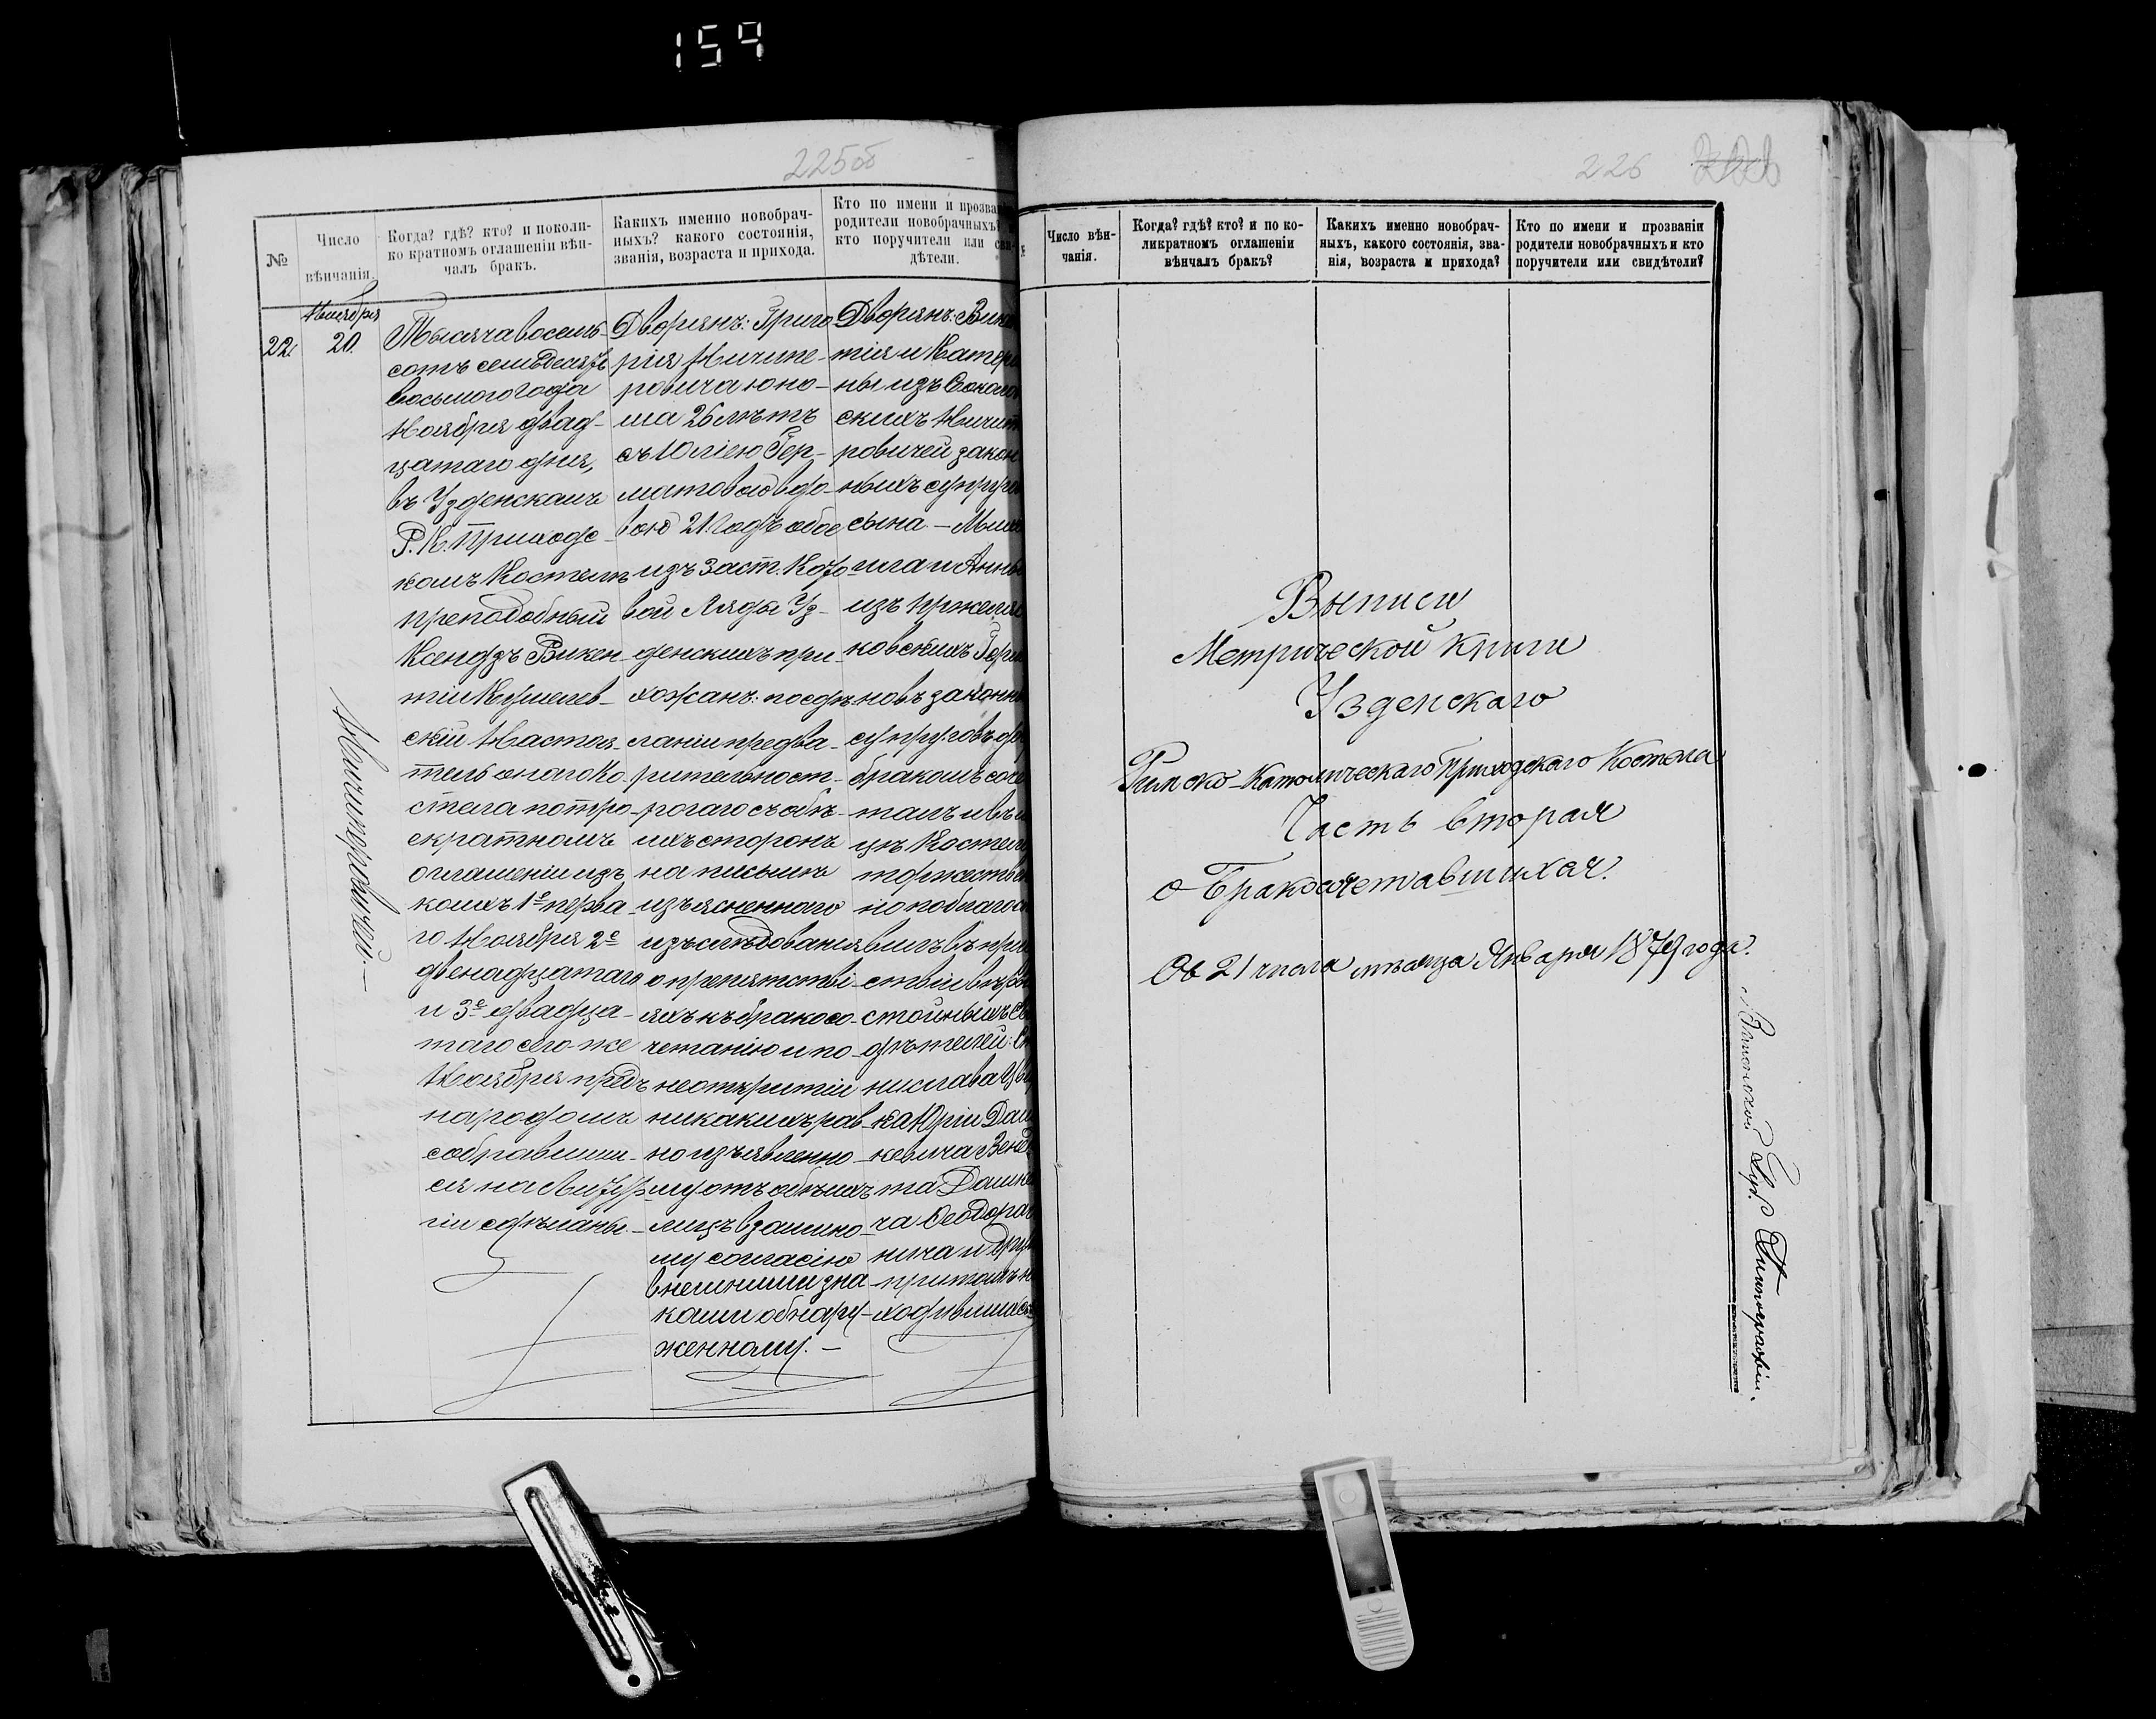 159
225об
№
Число
вѣнчанія.
Когда? гдѣ? кто? и поколи-
ко кратномъ оглашеніи вѣн-
чалъ бракъ.
Какихъ именно новобрач-
ныхъ? какого состоянія,
званія, возраста и прихода.
Кто по имени и прозва
родители новобрачныхъ?
кто поручители или сви-
дѣтели.
22.
Ноября
20.
Ничипоровичей.—
Тысяча восемь-
сотъ семьдесятъ
восьмого года
Ноября двад-
цатаго дня,
въ Узденскомъ
Р. К. Приходс-
комъ Костелѣ
преподобный
Ксендзъ Викен-
тій
скій Настоя-
тель онаго Ко-
стела по тро-
екратномъ
оглашеніи изъ
коихъ 1е перва-
го Ноября 2е
двенадцатаго
и 3е двадца-
таго сего-же
Ноября предъ
народомъ
собравшим-
ся на Литур-
гіи сдѣланы.—
Дворянъ: Григо-
рія Ничипо-
ровича юно-
ша 26 лѣтъ
съ Юліею Гер-
матовою вдо-
вою 21 годъ обое
изъ заст.
вой Ляды Уз-
денскихъ при-
хожанъ: по сдѣ-
ланіи предва-
рительност-
рогаго съ обѣ-
ихъ сторонъ
на письмѣ
изъясненнаго
изслѣдованія
о препятстві-
яхъ къ бракосо-
четанію и по
неоткрытіи
никакихъ рав-
но изъявленно-
му отъ обѣихъ
лицъ взаимно-
му согласію
внешними зна-
ками обнару-
женному.—
Дворянъ: Викен
тія и Катери
ны изъ Соколов
скихъ Ничип
ровичей закон
ныхъ супруго
сына — Миха
ила и Анны
изъ
ковскихъ
новъ законны
супруговъ
бракомъ соче
талъ и въ
цѣ Костел
торжествен
но поблагосл
вилъ въ при
ствіи вѣро
стойныхъ Св
дѣтелей: Ст
нислава
ка Юрія Даш
кевича Венед
та Дашке
ча Ѳеодора
нича и друг
притомъ н
ходившихся
226
Число вѣн-
чанія.
Когда? гдѣ? кто? и по ко-
ликратномъ оглашеніи
вѣнчалъ бракъ?
Какихъ именно новобрач-
ныхъ, какого состоянія, зва-
нія, возраста и прихода?
Кто по имени и прозваніи
родители новобрачныхъ и кто
поручители или свидѣтели?
Выписи
Метрической книги
Узденскаго
Римско-Католическаго Приходскаго Костела
Часть вторая
о Бракосочетавшихся.
Об 21 числа мѣсяца Января 1879 года.
Губ. Типографіи.